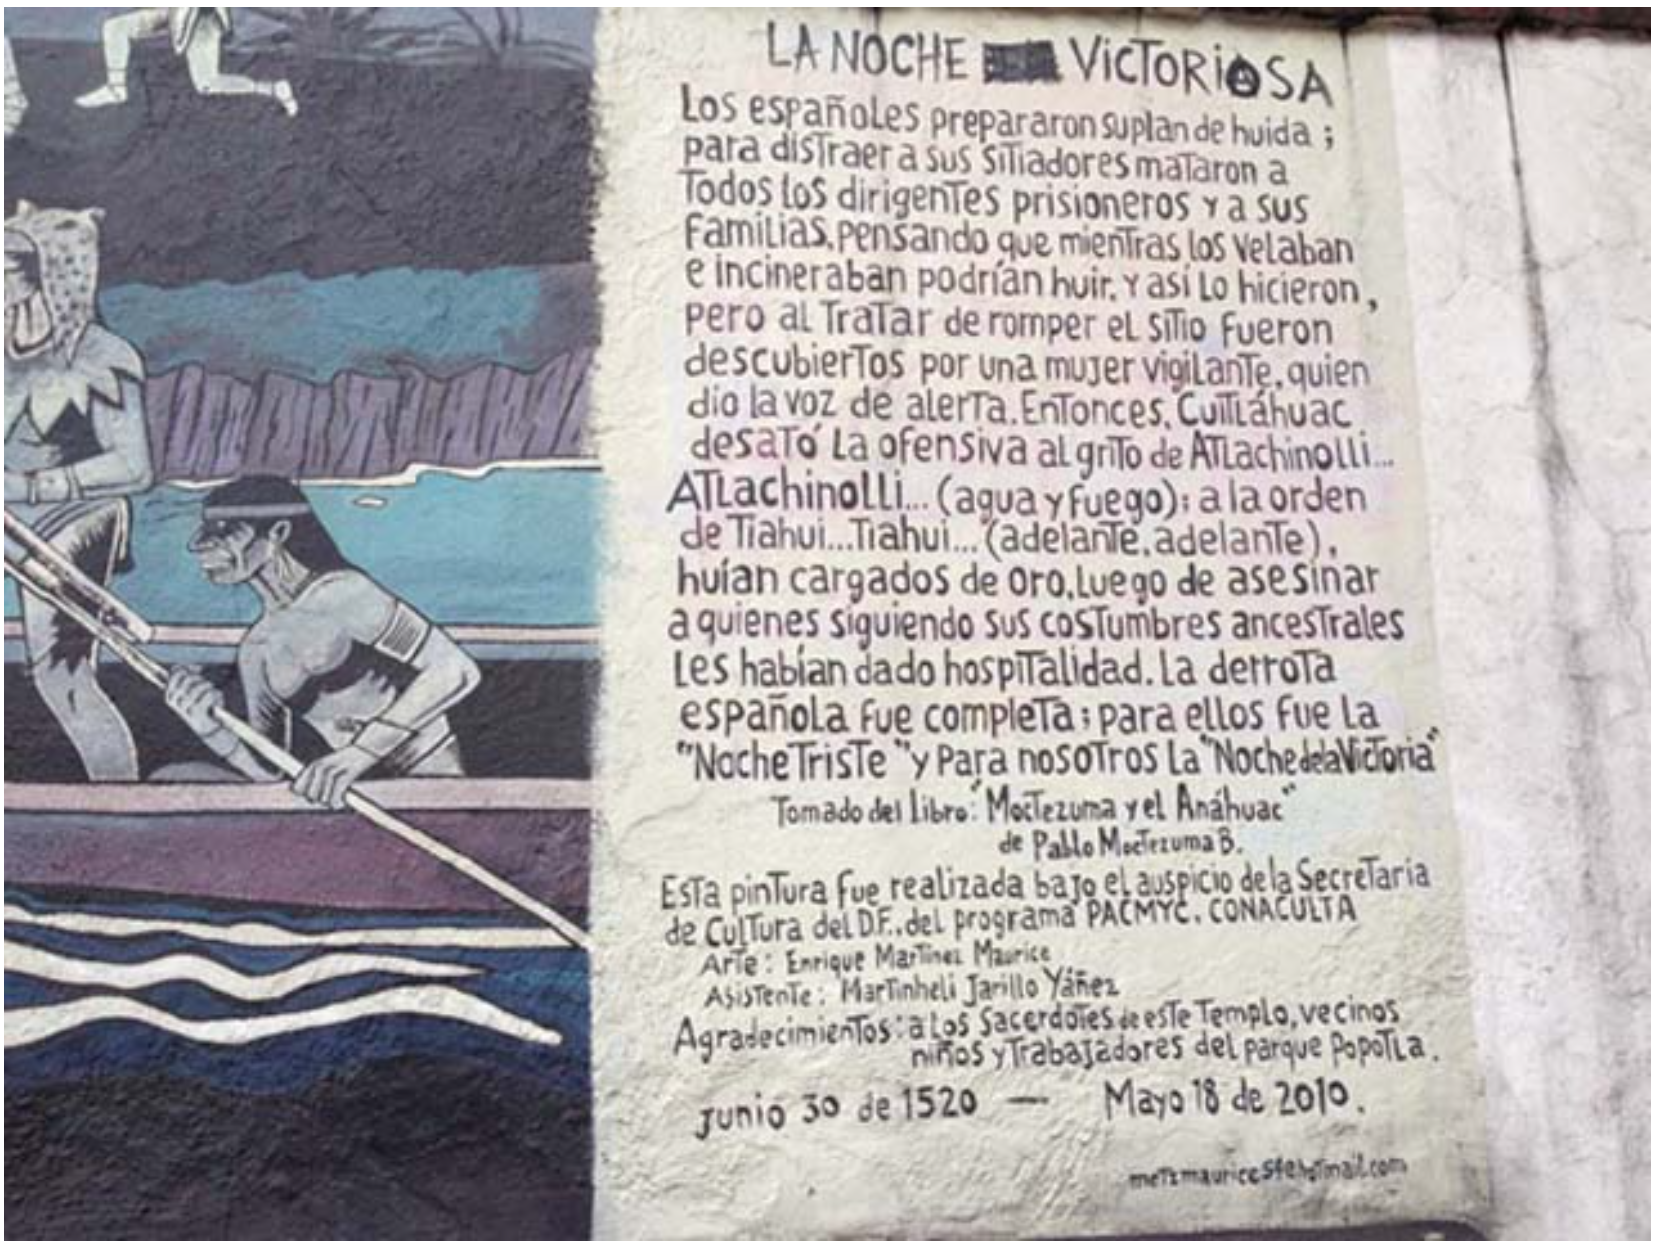 LA NOCHE VICTORIOSA
Los españoles prepararon su plan de huida ;
para distraer a sus sitiadores mataron a
todos los dirigentes prisioneros y a sus
familias, pensando que mientras los velaban
e incineraban podrían huir. Y así lo hicieron,
pero al tratar de romper el sitio fueron
descubiertos por una mujer vigilante, quien
dio la voz de alerta. Entonces, Cuitláhuac
desató la ofensiva al grito de Atlachinolli...
Atlachinolli... (agua y fuego); a la orden
de Tiahui... Tiahui... (adelante, adelante),
huían cargados de oro, luego de asesinar
a quienes siguiendo sus costumbres ancestrales
les habían dado hospitalidad. La derrota
española fue completa; para ellos fue la
"Noche Triste" y para nosotros la "Noche de la Victoria"
Tomado del libro: "Moctezuma y el Anáhuac"
de Pablo Moctezuma B.
Esta pintura fue realizada bajo el auspicio de la Secretaria
de Cultura del D.F., del programa PACMYC, CONACULTA
Arte: Enrique Martínez Maurice
Asistente: Martinheli Jarillo Yáñez
Agradecimientos: a los Sacerdotes de este Templo, vecinos
niños y trabajadores del parque Popotla.
Junio 30 de 1520 — Mayo 18 de 2010.